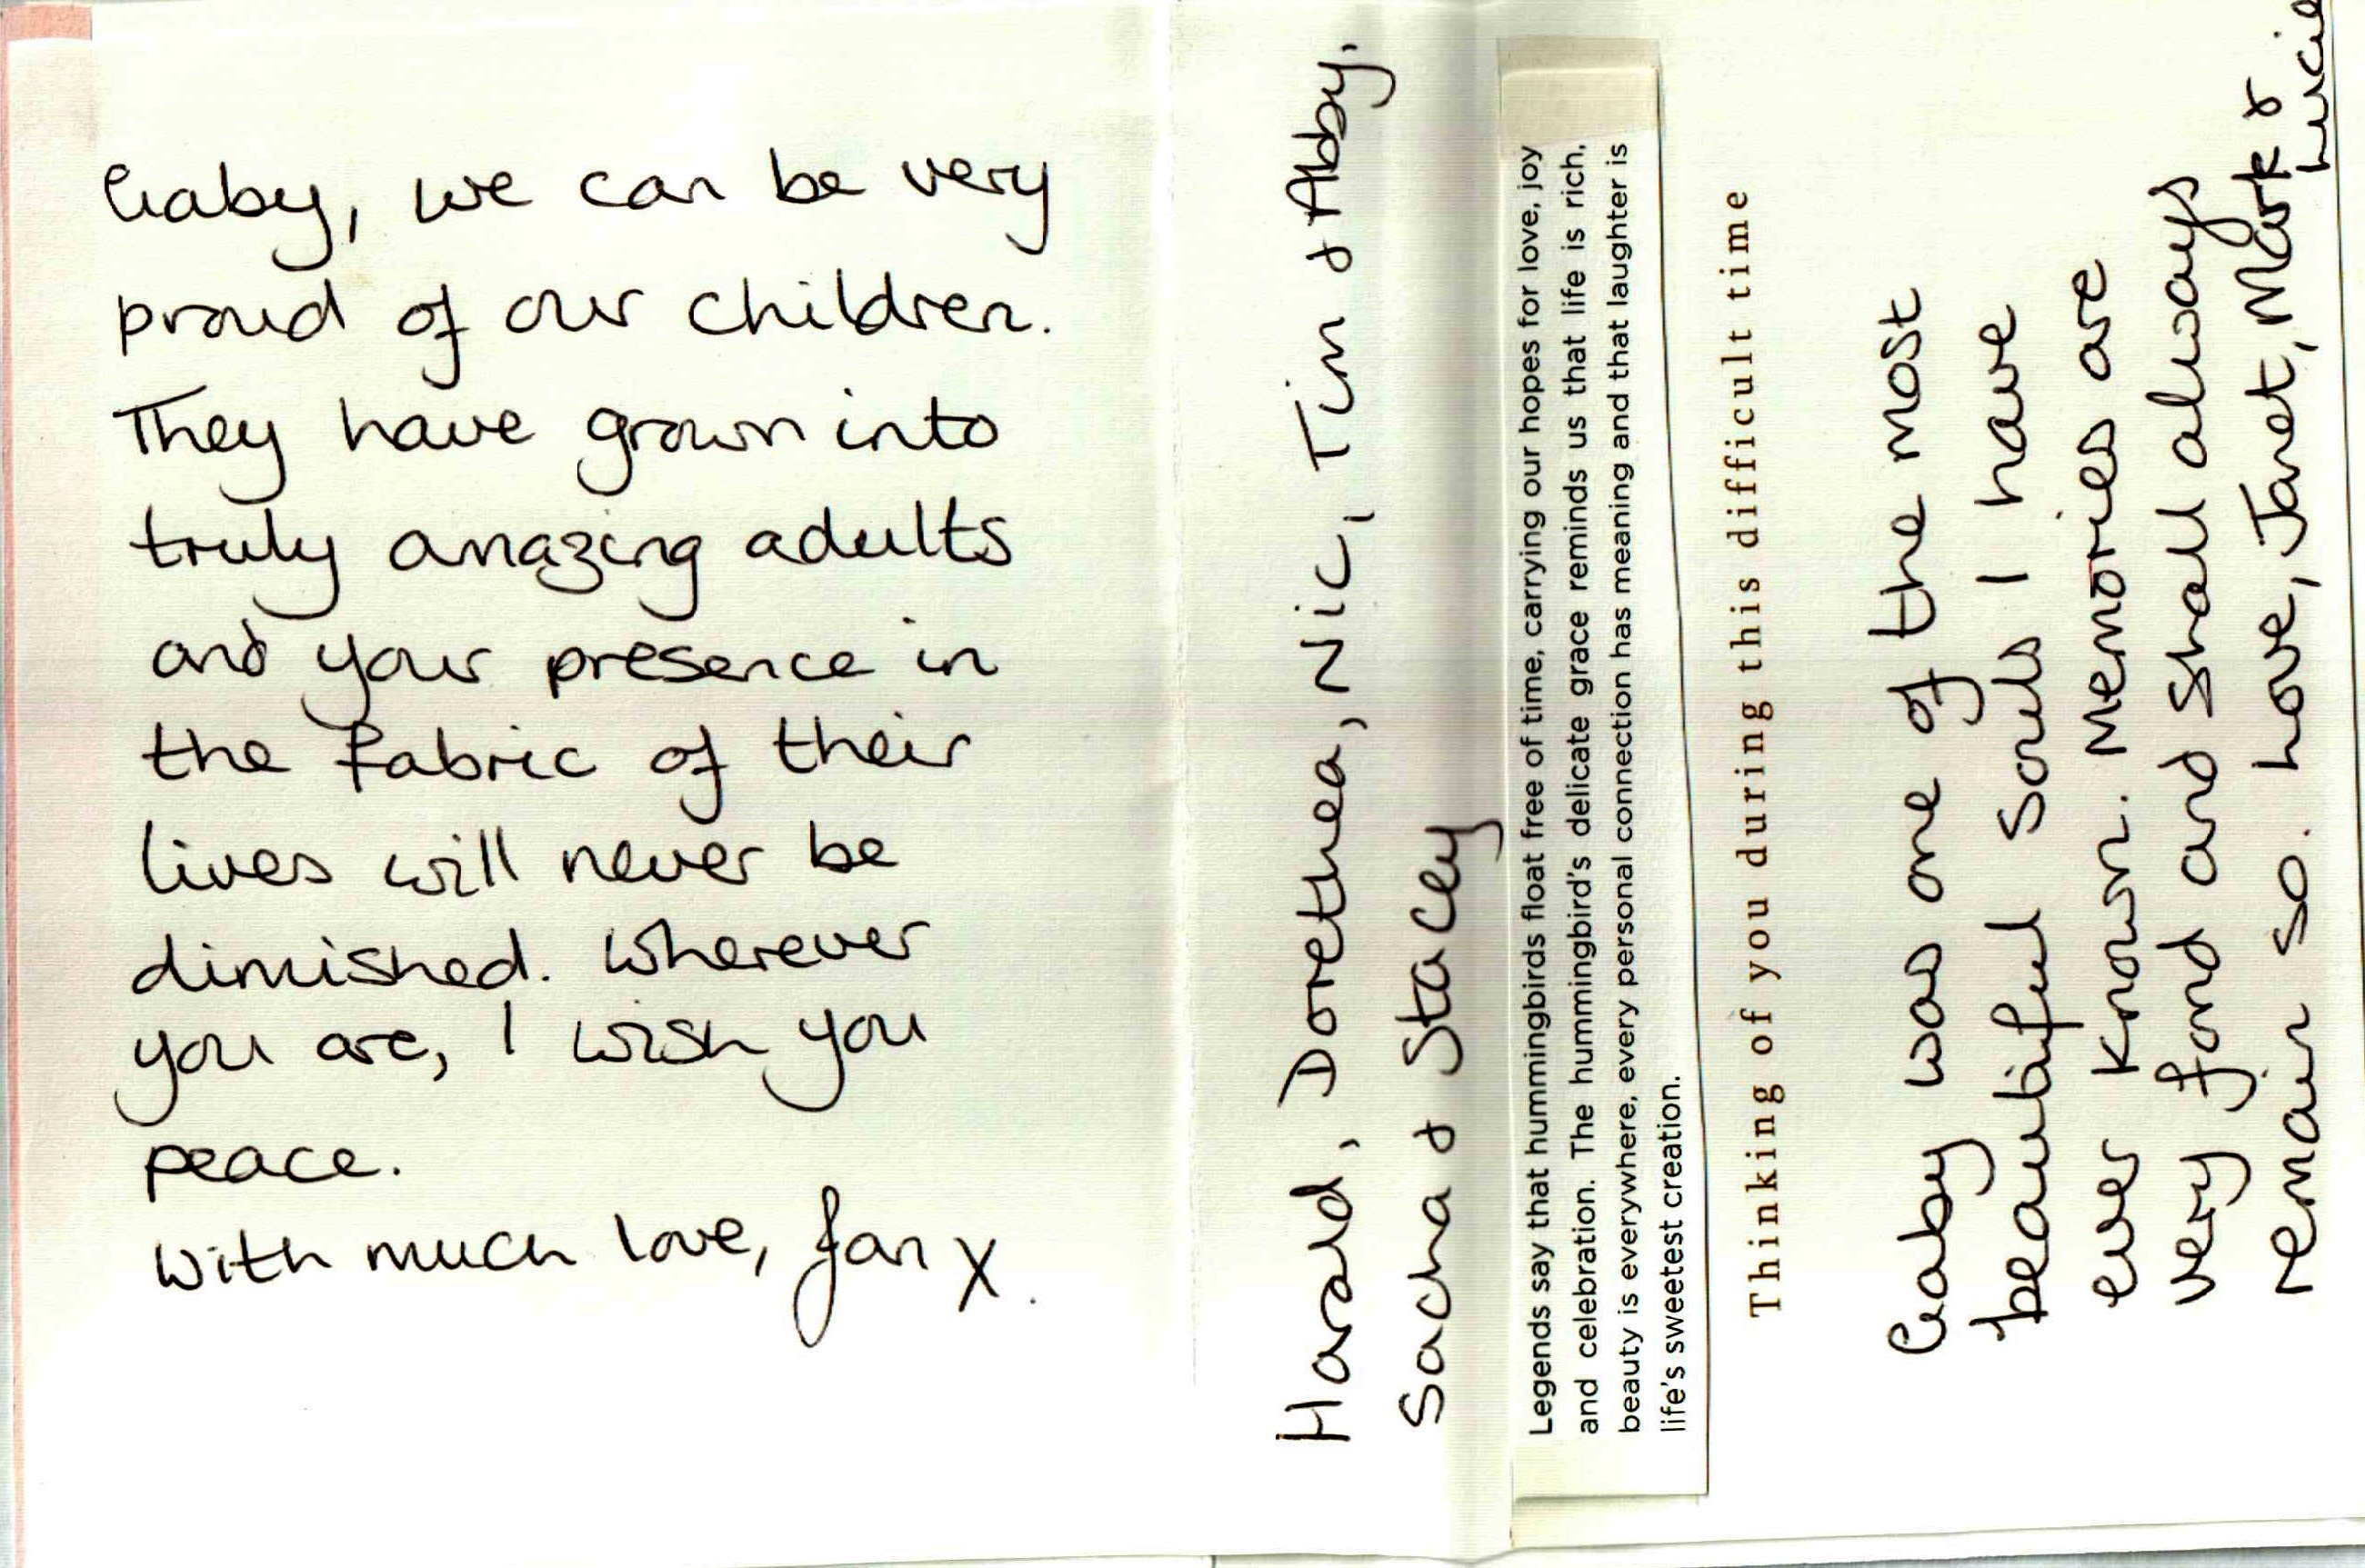 Gaby, we can be very
proud of our children.
They have grown into
truly amazing adults
and your presence in
the fabric of their
lives will never be
dimished. Wherever
you are, I wish you
peace.
With much love, Jan x.
Harald, Dorethea, Nic, Tim & Abby,
Sacha & Stacey
Legends say that hummingbirds float free of time, carrying our hopes for love, joy
and celebration. The hummingbird's delicate grace reminds us that life is rich,
beauty is everywhere, every personal connection has meaning and that laughter is
life's sweetest creation.
Thinking of you during this difficult time
Gaby was one of the most
beautiful souls I have
ever known. Memories are
very fond and shall always
remain so. Love, Janet, Mark &
Lucie